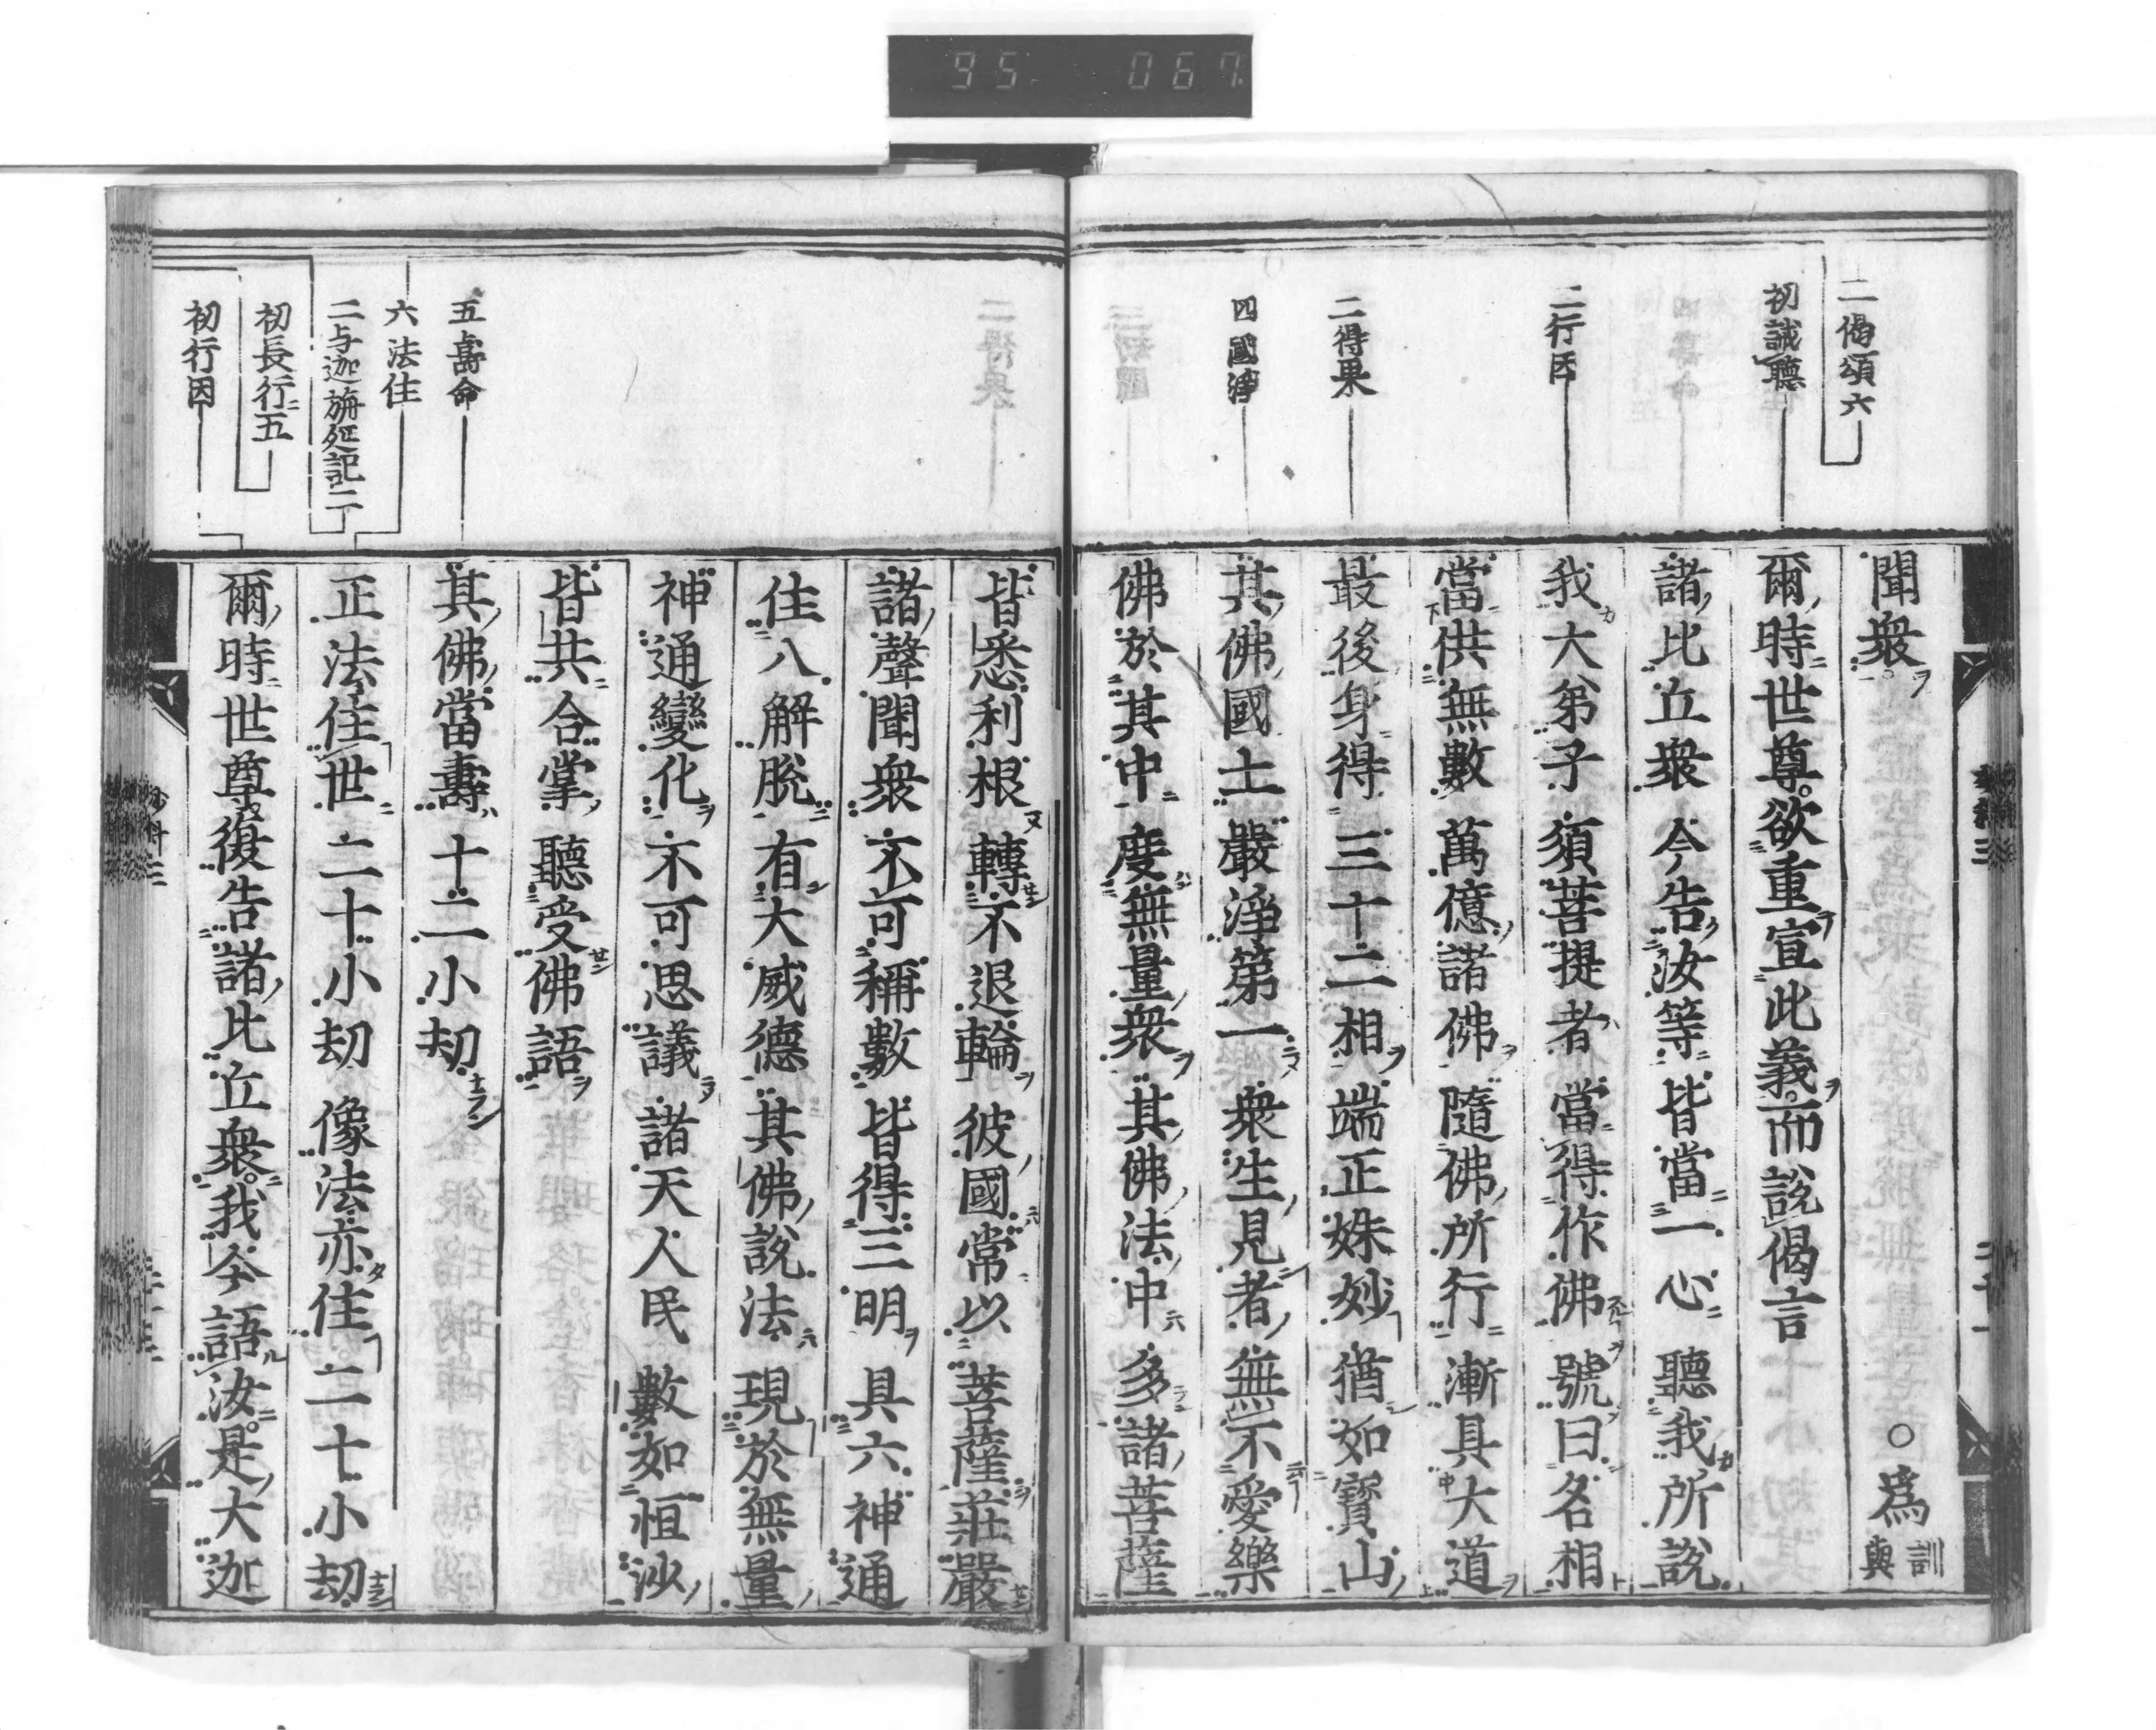 95 067
二偈頌六
初誡聽
二行因
二得果
四國淨
聞衆 ○爲訓與
爾時世尊欲重宣此義而說偈言
諸比丘衆今告汝等皆當一心聽我所說
我大弟子須菩提者當得作佛號曰名相
當供無數萬億諸佛隨佛所行漸具大道
最後身得三十二相端正姝妙猶如寶山
其佛國土嚴淨第一衆生見者無不愛樂
佛於其中度無量衆其佛法中多諸菩薩
五壽命
六法住
二与迦旃延記二
初長行五
初行因
皆悉利根轉不退輪彼國常以菩薩莊嚴
諸聲聞衆不可稱數皆得三明具六神通
住八解脫有大威德其佛說法現於無量
神通變化不可思議諸天人民數如恒沙
皆共合掌聽受佛語
其佛當壽十二小劫
正法住世二十小劫像法亦住二十小劫
爾時世尊復告諸比丘衆我今語汝是大迦